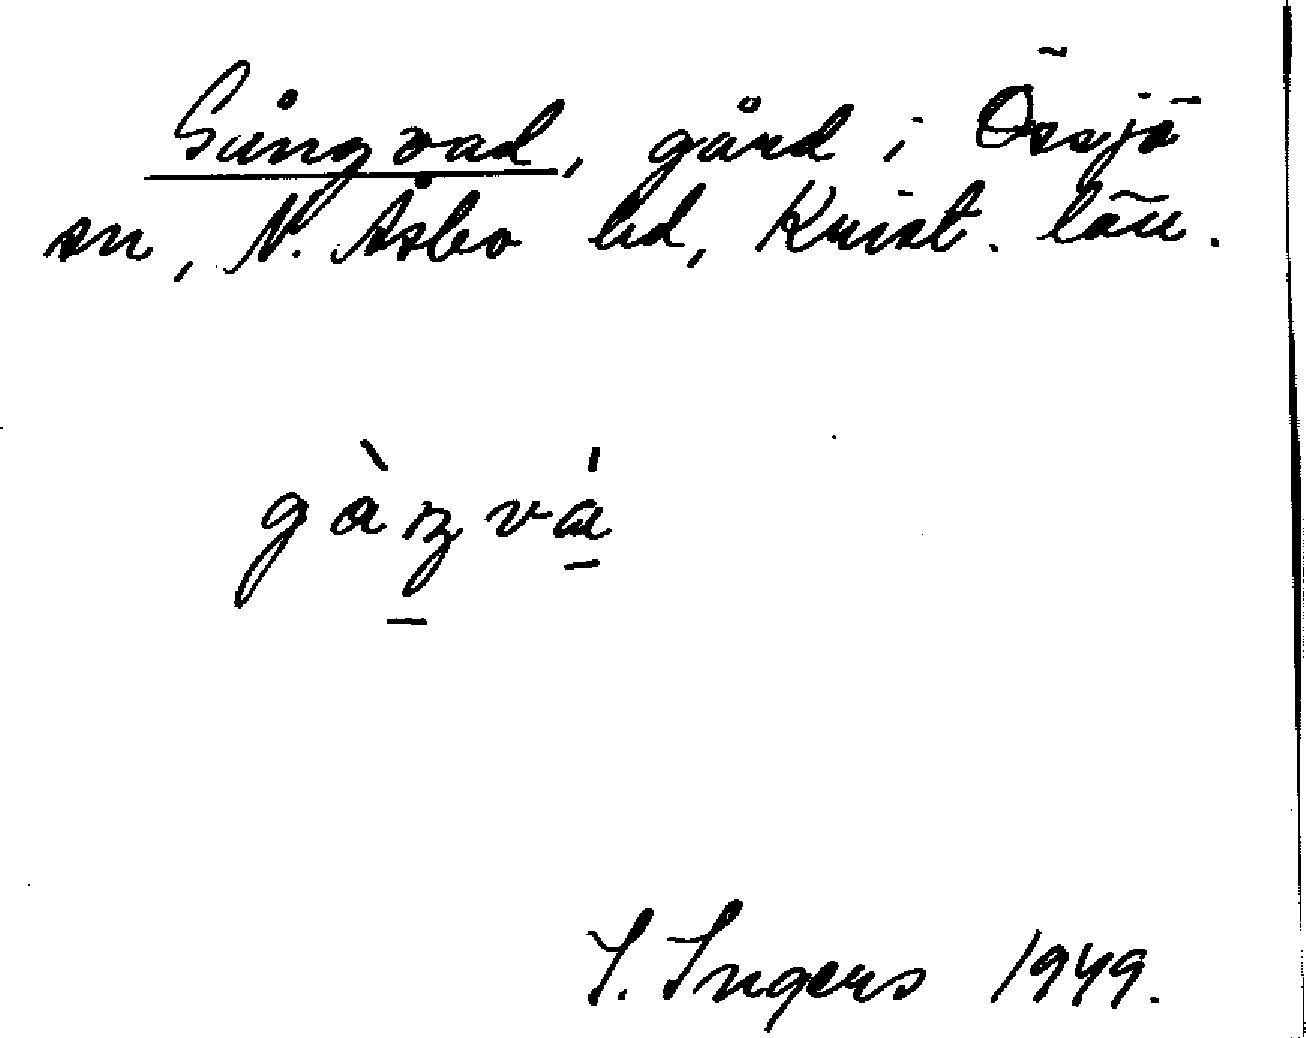 Gångvad, gård i Össjö
sn, N. Åsbo hd, Krist. län.
gàŋ̲vá̲
I. Ingers 1949.